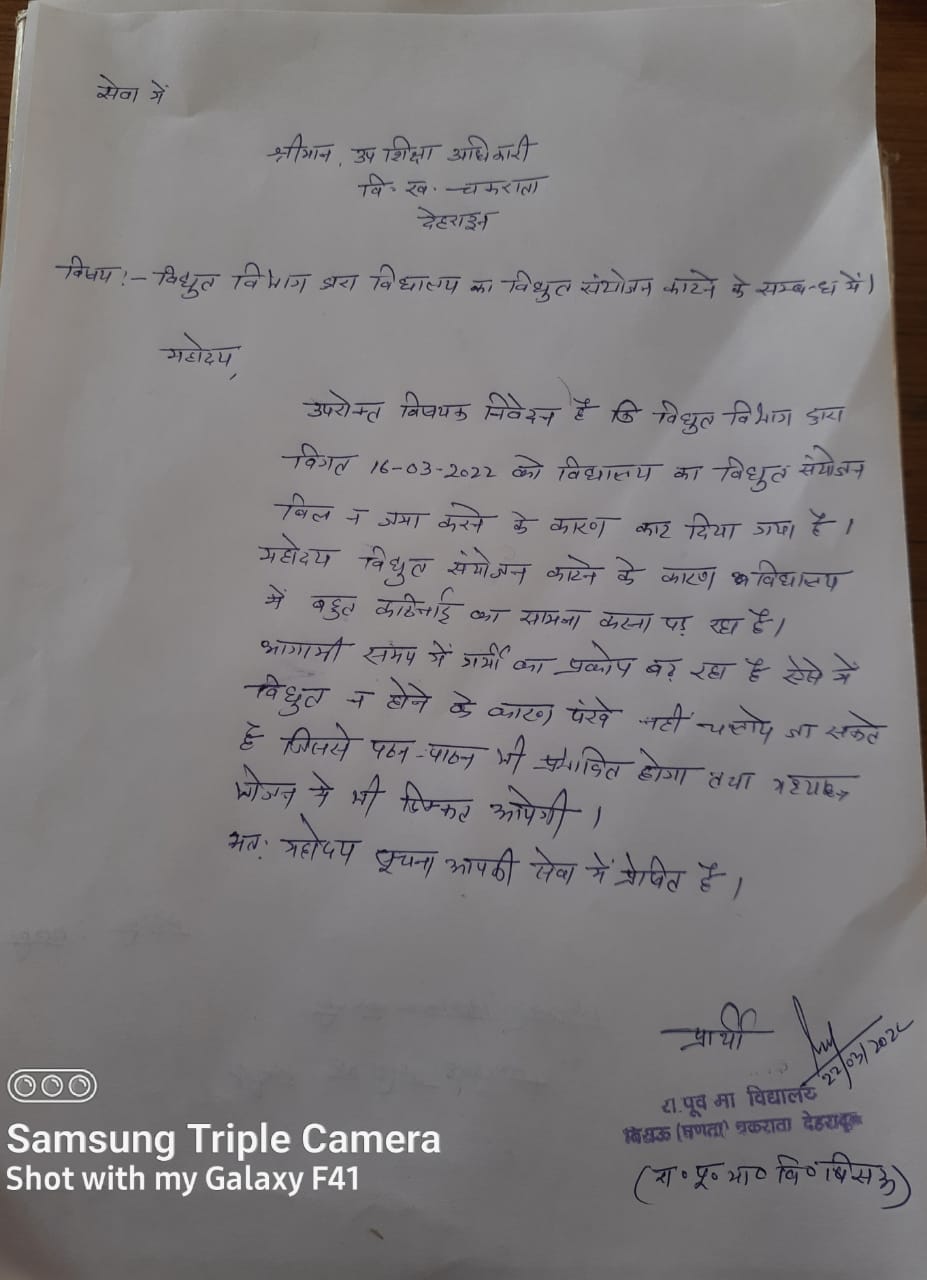 सेवा में
श्रीमान, उप शिक्षा अधिकारी
वि. ख. - चकराता
देहरादून
विषय:- विधुत विभाग द्वारा विद्यालय का विधुत संयोजन काटने के सम्बन्ध में।
महोदय,
उपरोक्त विषयक निवेदन है कि विधुत विभाग द्वारा
विगत 16-03-2022 को विद्यालय का विधुत संयोजन
बिल न जमा करने के कारण काट दिया गया है।
महोदय विधुत संयोजन काटने के कारण विद्यालय
में बहुत कठिनाई का सामना करना पड़ रहा है।
आगामी समय में गर्मी का प्रकोप बढ़ रहा है ऐसे में
विधुत न होने के कारण पंखे नहीं चलाये जा सकते
है जिससे पठन-पाठन भी प्रभावित होगा तथा मध्याह्न
भोजन में भी दिक्कत आयेगी।
अत: महोदय सूचना आपकी सेवा में प्रेषित है।
प्रार्थी
22/03/2022
रा. पूव मा विद्यालय
चकराता देहरादून
(रा० पू० मा० वि० बिसऊ)
Samsung Triple Camera
Shot with my Galaxy F41